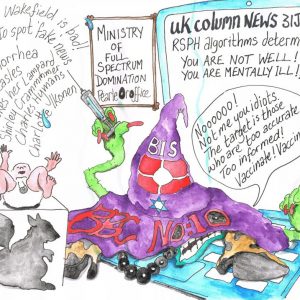 Wakefield is bad!
To spot fake news
orrhea
easles
her lanyard
Shirley
charlotte
MINISTRY
OF
FULL
SPECTRUM
DOMINATION
office
UK COLUMN NEWS 31J
RSPH algorithms determ
YOU ARE NOT WELL!
YOU ARE MENTALLY ILL!
Nooooo!
Not me you idiots.
The target is those
who are too accurate!
Too informed!
Vaccinate! Vaccin
BIS
BBC